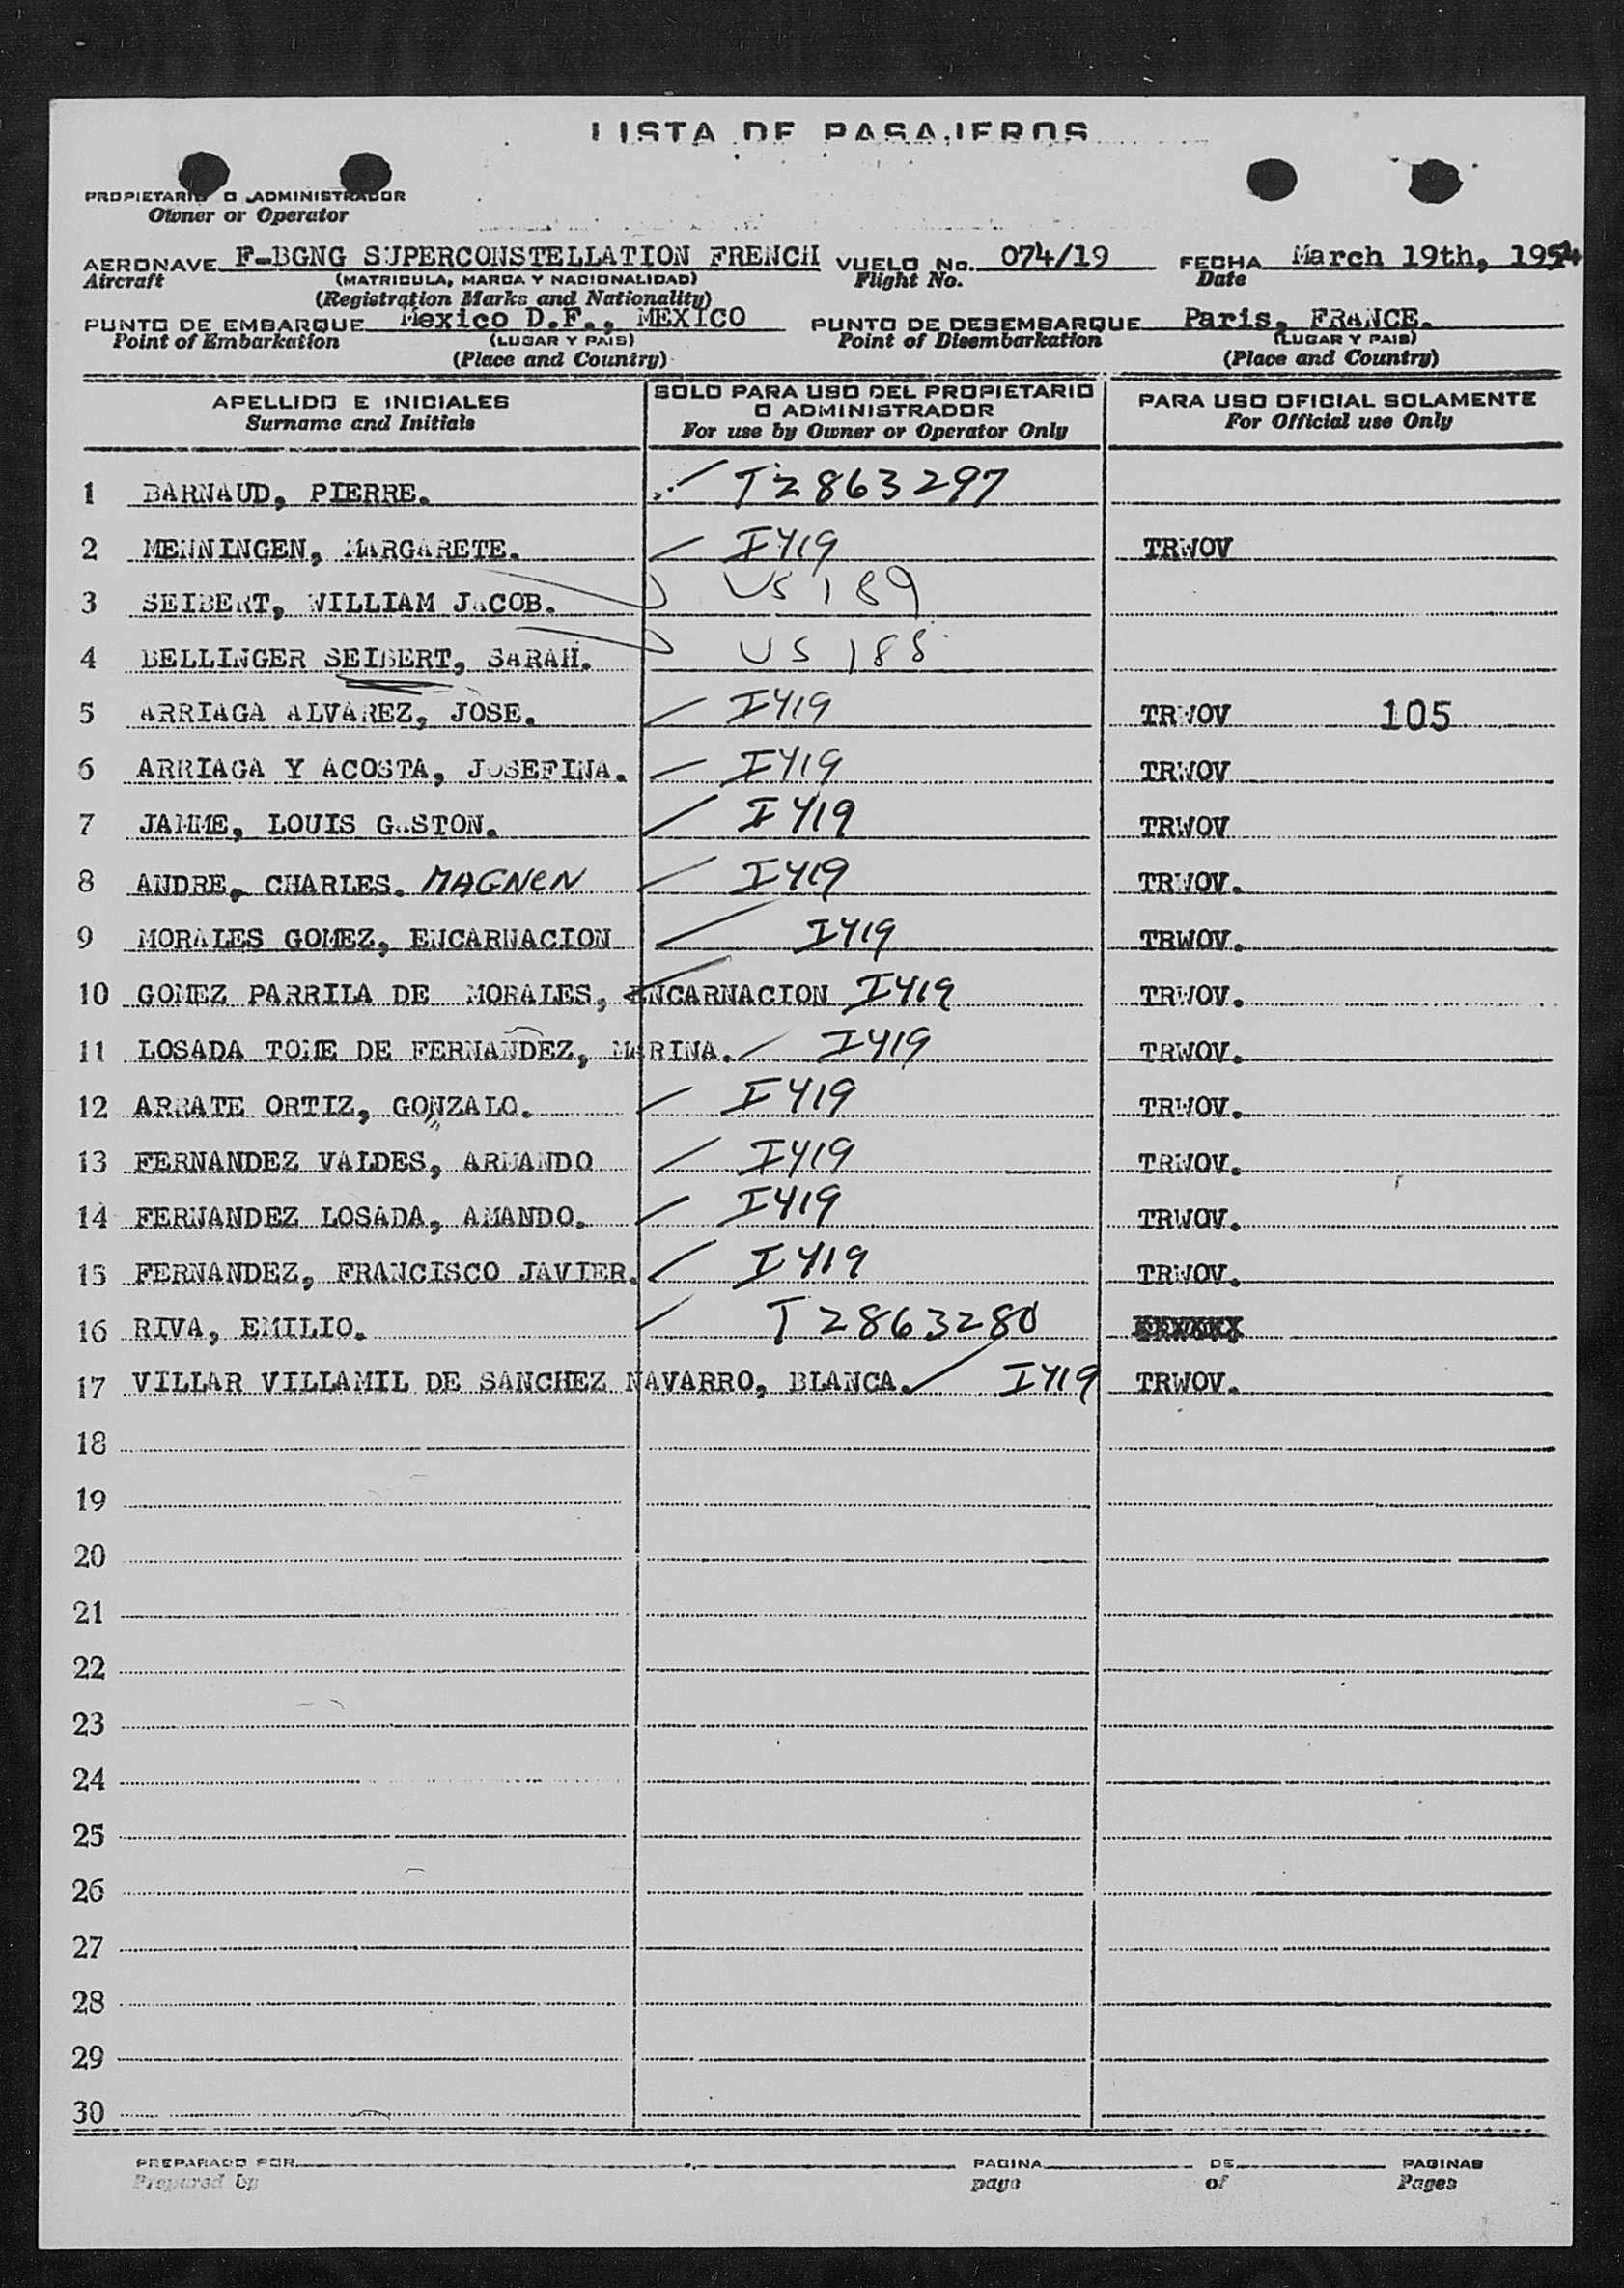 LISTA DE PASAJEROS
PROPIETARIO O ADMINISTRADOR
Owner or Operator
AERONAVE F-BGNG SUPERCONSTELLATION FRENCH VUELO No. 074/19 FECHA March 19th, 1954
Aircraft (MATRICULA, MARCA Y NACIONALIDAD) Flight No. Date
(Registration Marks and Nationality)
PUNTO DE EMBARQUE Mexico D.F., MEXICO PUNTO DE DESEMBARQUE Paris, FRANCE.
Point of Embarkation (LUGAR Y PAIS) Point of Disembarkation (LUGAR Y PAIS)
(Place and Country) (Place and Country)
APELLIDO E INICIALES SOLO PARA USO DEL PROPIETARIO O ADMINISTRADOR PARA USO OFICIAL SOLAMENTE
Surname and Initials For use by Owner or Operator Only For Official use Only
1 BARNAUD, PIERRE. T2863297
2 MENNINGEN, MARGARETE. I419 TRWOV
3 SEIBERT, WILLIAM JACOB. US 189
4 BELLINGER SEIBERT, SARAH. US 188
5 ARRIAGA ALVAREZ, JOSE. I419 TRWOV 105
6 ARRIAGA Y ACOSTA, JOSEFINA. I419 TRWOV
7 JAMME, LOUIS GASTON. I419 TRWOV
8 ANDRE, CHARLES. MAGNEN I419 TRWOV.
9 MORALES GOMEZ, ENCARNACION I419 TRWOV.
10 GOMEZ PARRILA DE MORALES, ENCARNACION I419 TRWOV.
11 LOSADA TOME DE FERNANDEZ, MARINA. I419 TRWOV.
12 ARRATE ORTIZ, GONZALO. I419 TRWOV.
13 FERNANDEZ VALDES, ARMANDO I419 TRWOV.
14 FERNANDEZ LOSADA, AMANDO. I419 TRWOV.
15 FERNANDEZ, FRANCISCO JAVIER. I419 TRWOV.
16 RIVA, EMILIO. T2863280
17 VILLAR VILLAMIL DE SANCHEZ NAVARRO, BLANCA. I419 TRWOV.
18
19
20
21
22
23
24
25
26
27
28
29
30
PREPARADO POR PAGINA DE PAGINAS
Prepared by page of Pages